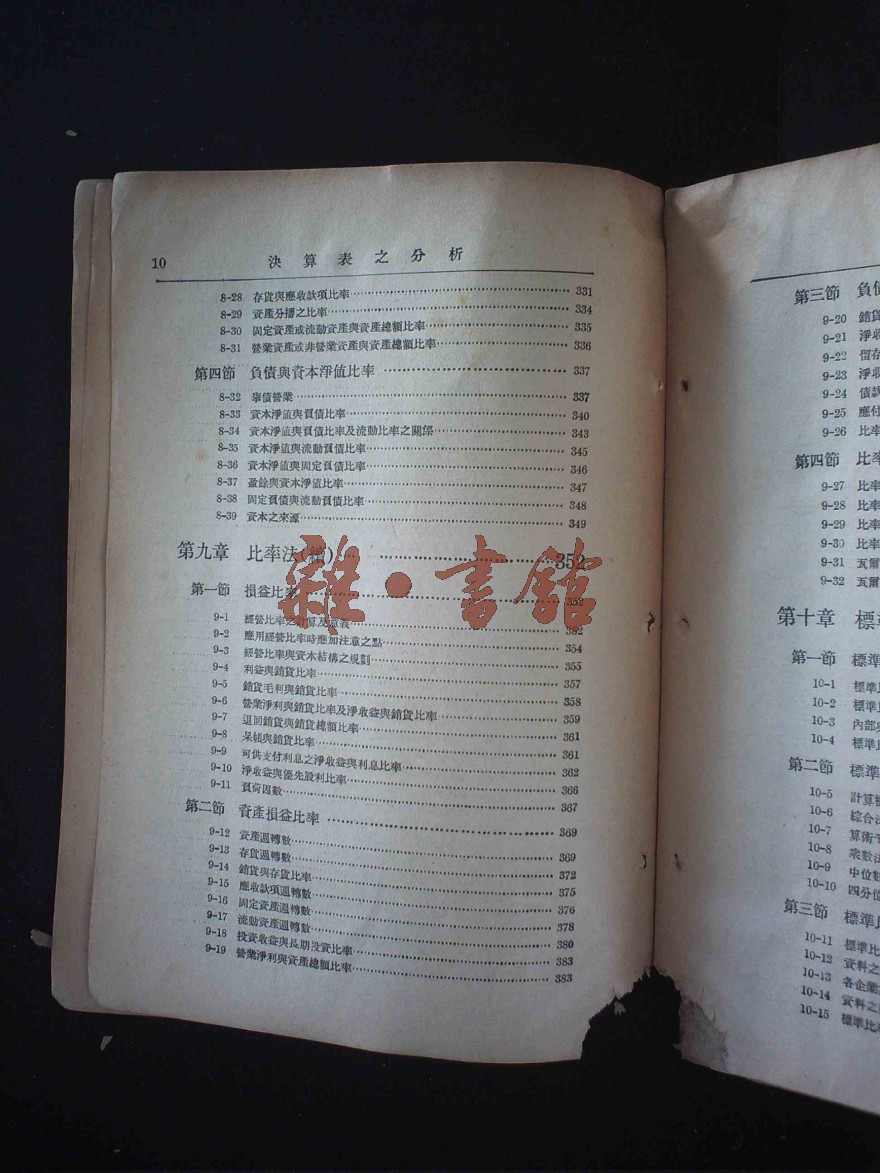 10 決算表之分析
8-28 存貨與應收款項比率 331
8-29 資產分播之比率 334
8-30 固定資產或流動資產與資產總額比率 335
8-31 營業資產或非營業資產與資產總額比率 336
第四節 負債與資本淨值比率 337
8-32 舉債營業 337
8-33 資本淨值與負債比率 340
8-34 資本淨值與負債比率及流動比率之關係 343
8-35 資本淨值與流動負債比率 345
8-36 資本淨值與固定負債比率 346
8-37 盈餘與資本淨值比率 347
8-38 固定負債與流動負債比率 348
8-39 資本之來源 349
第九章 比率法(續) 352
第一節 損益比率 352
9-1 經營比率之計算及意義 352
9-2 應用經營比率時應加注意之點 354
9-3 經營比率與資本結構之規劃 355
9-4 利益與銷貨比率 357
9-5 銷貨毛利與銷貨比率 358
9-6 營業淨利與銷貨比率及淨收益與銷貨比率 359
9-7 退回銷貨與銷貨總額比率 361
9-8 呆賬與銷貨比率 361
9-9 可供支付利息之淨收益與利息比率 362
9-10 淨收益與優先股利比率 366
9-11 負荷因數 367
第二節 資產損益比率 369
9-12 資產週轉數 369
9-13 存貨週轉數 372
9-14 銷貨與存貨比率 375
9-15 應收款項週轉數 376
9-16 固定資產週轉數 378
9-17 流動資產週轉數 380
9-18 投資收益與長期投資比率 383
9-19 營業淨利與資產總額比率 383
雜·書館
第三節 負債
9-20 銷貨
9-21 淨收
9-22 留存
9-23 淨收
9-24 債訴
9-25 應付
9-26 比率
第四節 比率
9-27 比率
9-28 比率
9-29 比率
9-30 比率
9-31 瓦爾
9-32 瓦爾
第十章 標準
第一節 標準
10-1 標準
10-2 標準
10-3 內部
10-4 標準
第二節 標準
10-5 計算
10-6 綜合法
10-7 算術
10-8 衆數法
10-9 中位數
10-10 四分位
第三節 標準
10-11 標準比
10-12 資料之
10-13 各企業
10-14 資料之
10-15 標準比